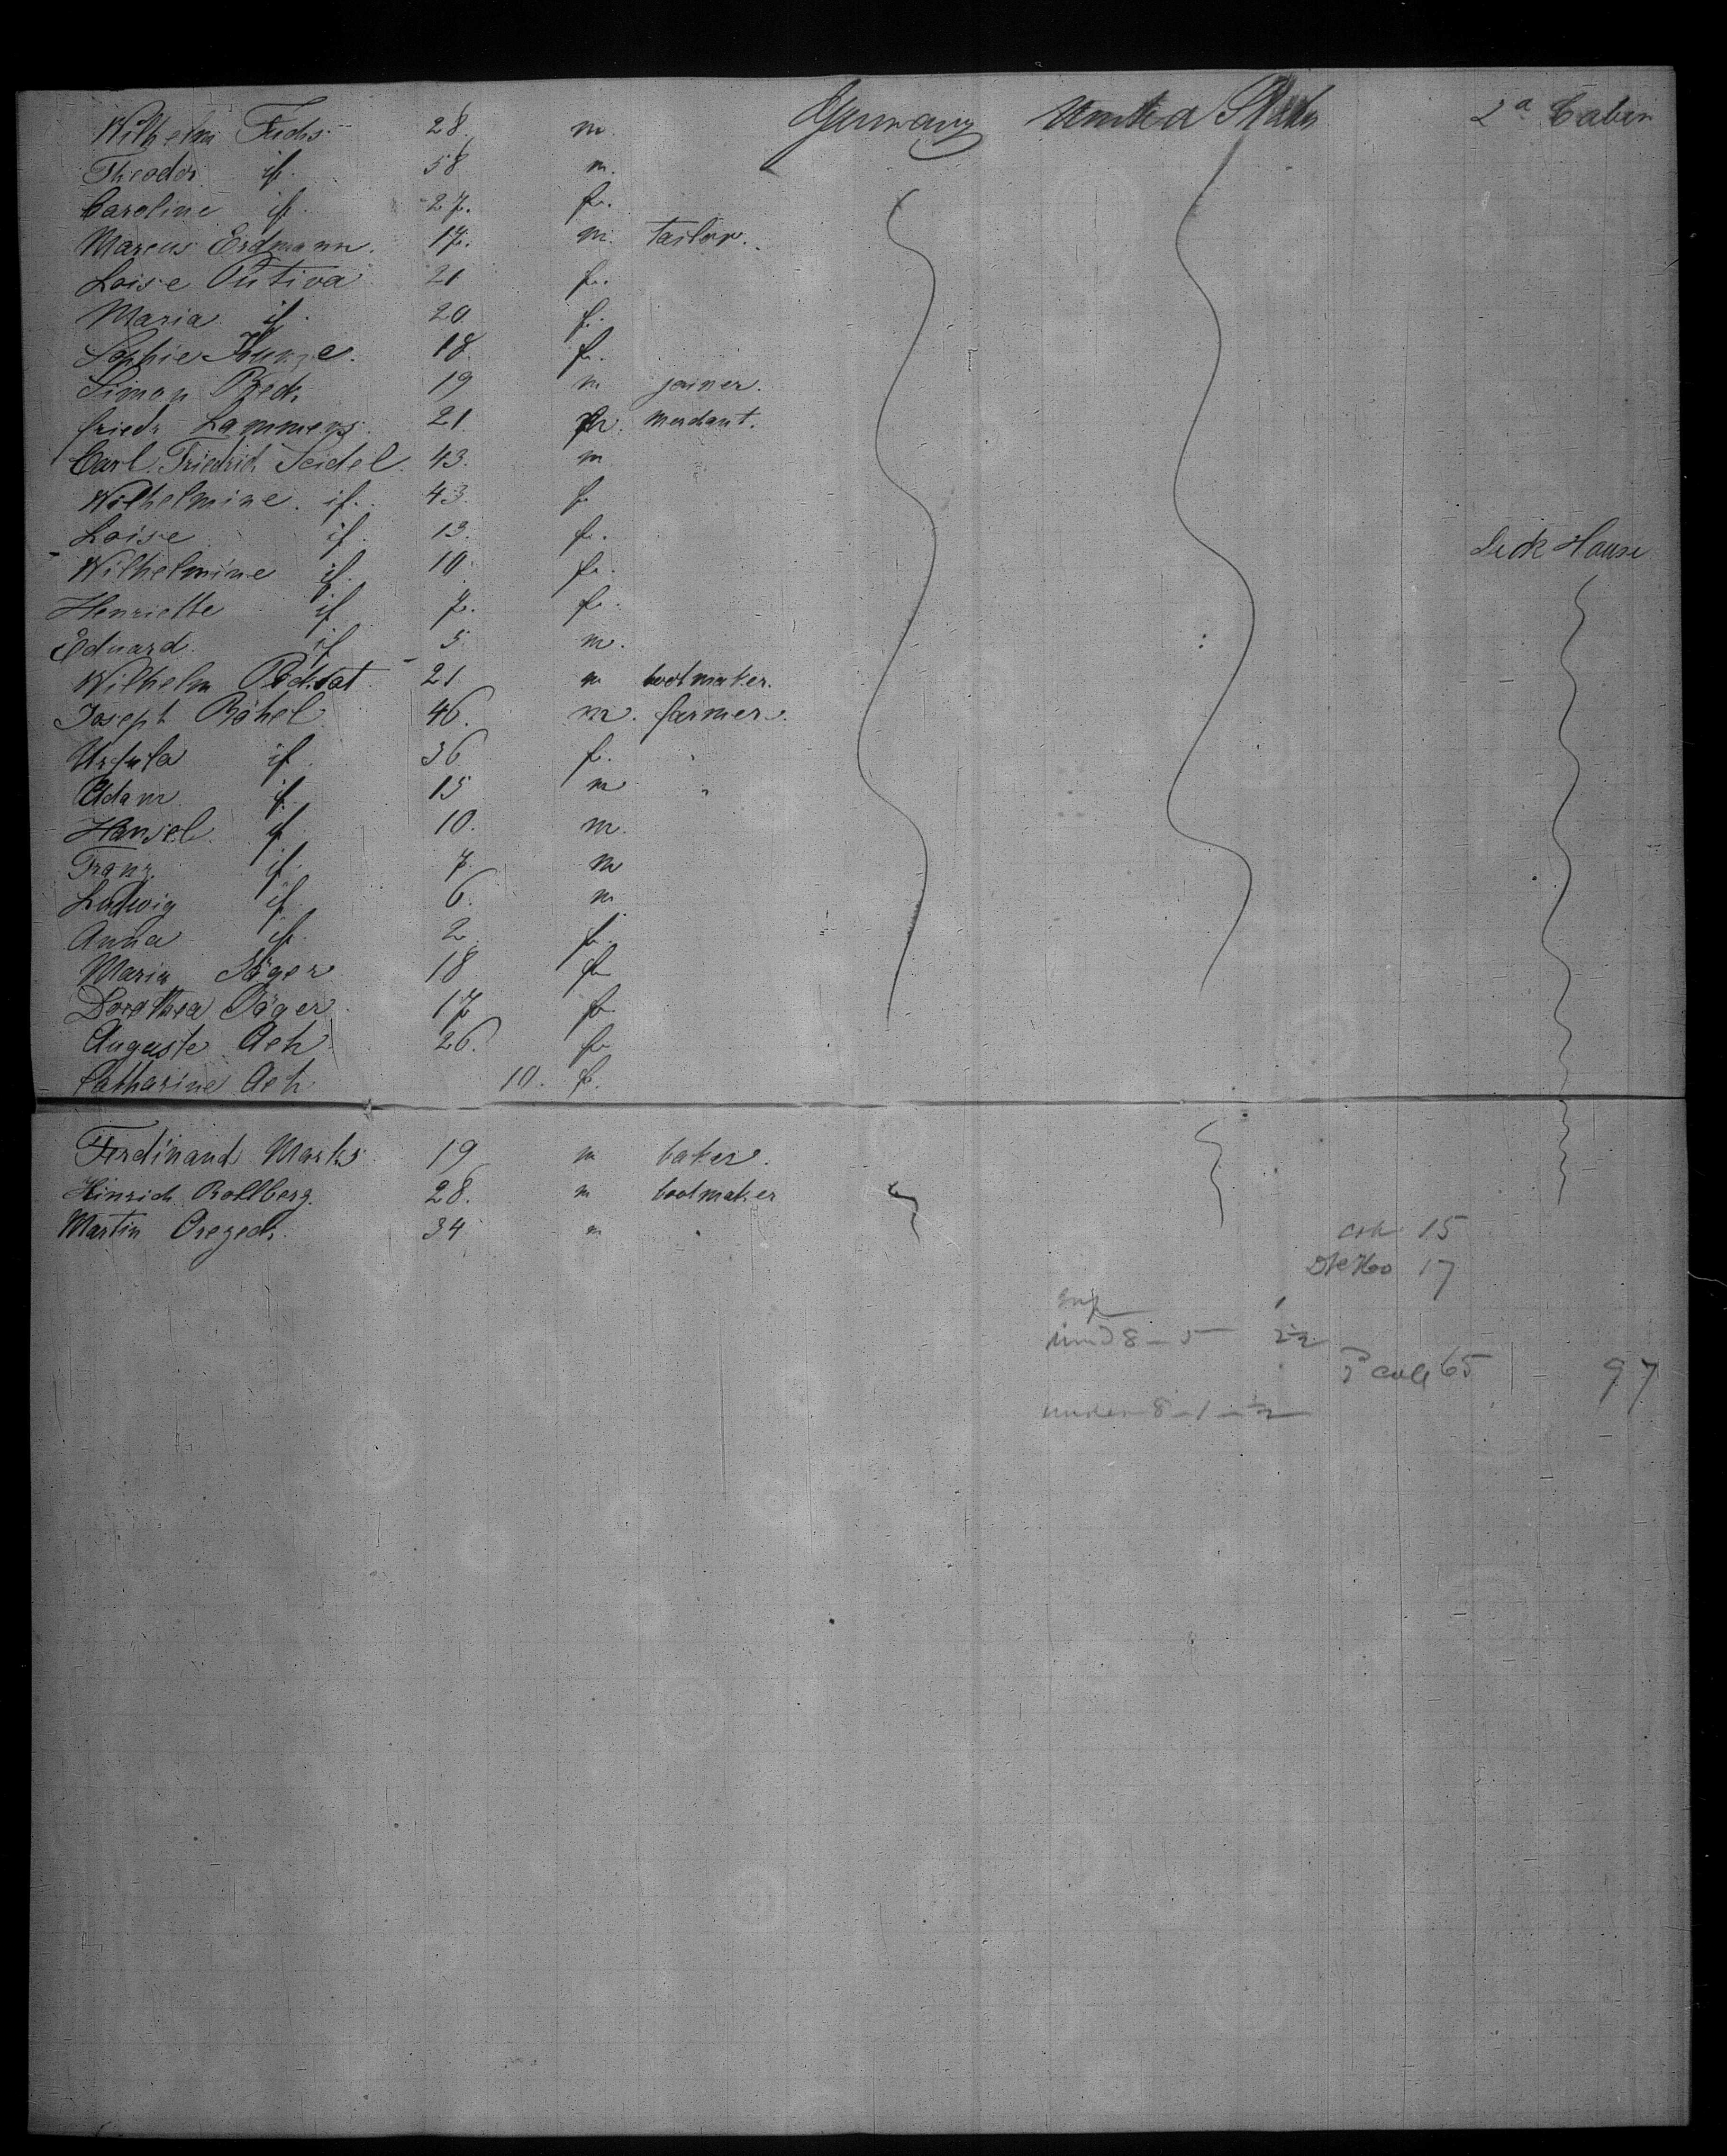 Wilhelm Fuchs 28. m. Germany United States 2d Cabin
Theodor if. 58 m.
Caroline if. 27. f.
Marcus Erdmann. 17. m. tailor.
Loise Putiva 21 f.
Maria if. 20. f.
Sophie Kunze. 18. f.
Simon Beck 19 m joiner.
Friedr Lammers 21. m. merchant.
Carl Friedrich Seidel. 43. m
Wilhelmine. if. 43. f
Loise if. 13. f.
Deck House
Wilhelmine if. 10. f.
Henriette if 7. f.
Eduard. if 5. m.
Wilhelm 21 m bootmaker.
Joseph Böhel 46. m. farmer.
Ursula if. 36 f. "
Adam if. 15 m "
Hansel. if 10. m.
Franz. if. 7. m
Ludwig if. 6. m
Anna if. 2 f.
Maria Jäger 18 f
Dorothea Jäger 17 f.
Auguste Ach 26. f
Catharine Ach 10. f.
Ferdinand Marks 19 m baker.
Hinrich Rollberg. 28. m bootmaker
Martin 34 m "
cab 15
Dk Ho 17
und 8 - 5 2½
65 97
under 8 - 1 - ½